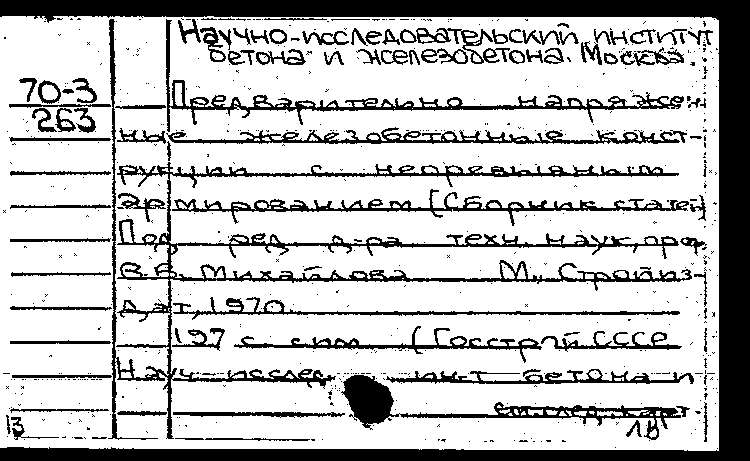 Научно-исследовательский институт
бетона и железобетона. Москва.
70-3
263
Предварительно напряжен-
ные железобетонные конст-
рукции с непрерывным
армированием [Сборник статей]
Под ред. д-ра техн. наук, проф.
В.В. Михайлова М., Стройиз-
дат, 1970.
197 с. с ил. (Госстрой СССР
Науч.-исслед. ин-т бетона и
см.след.карт.